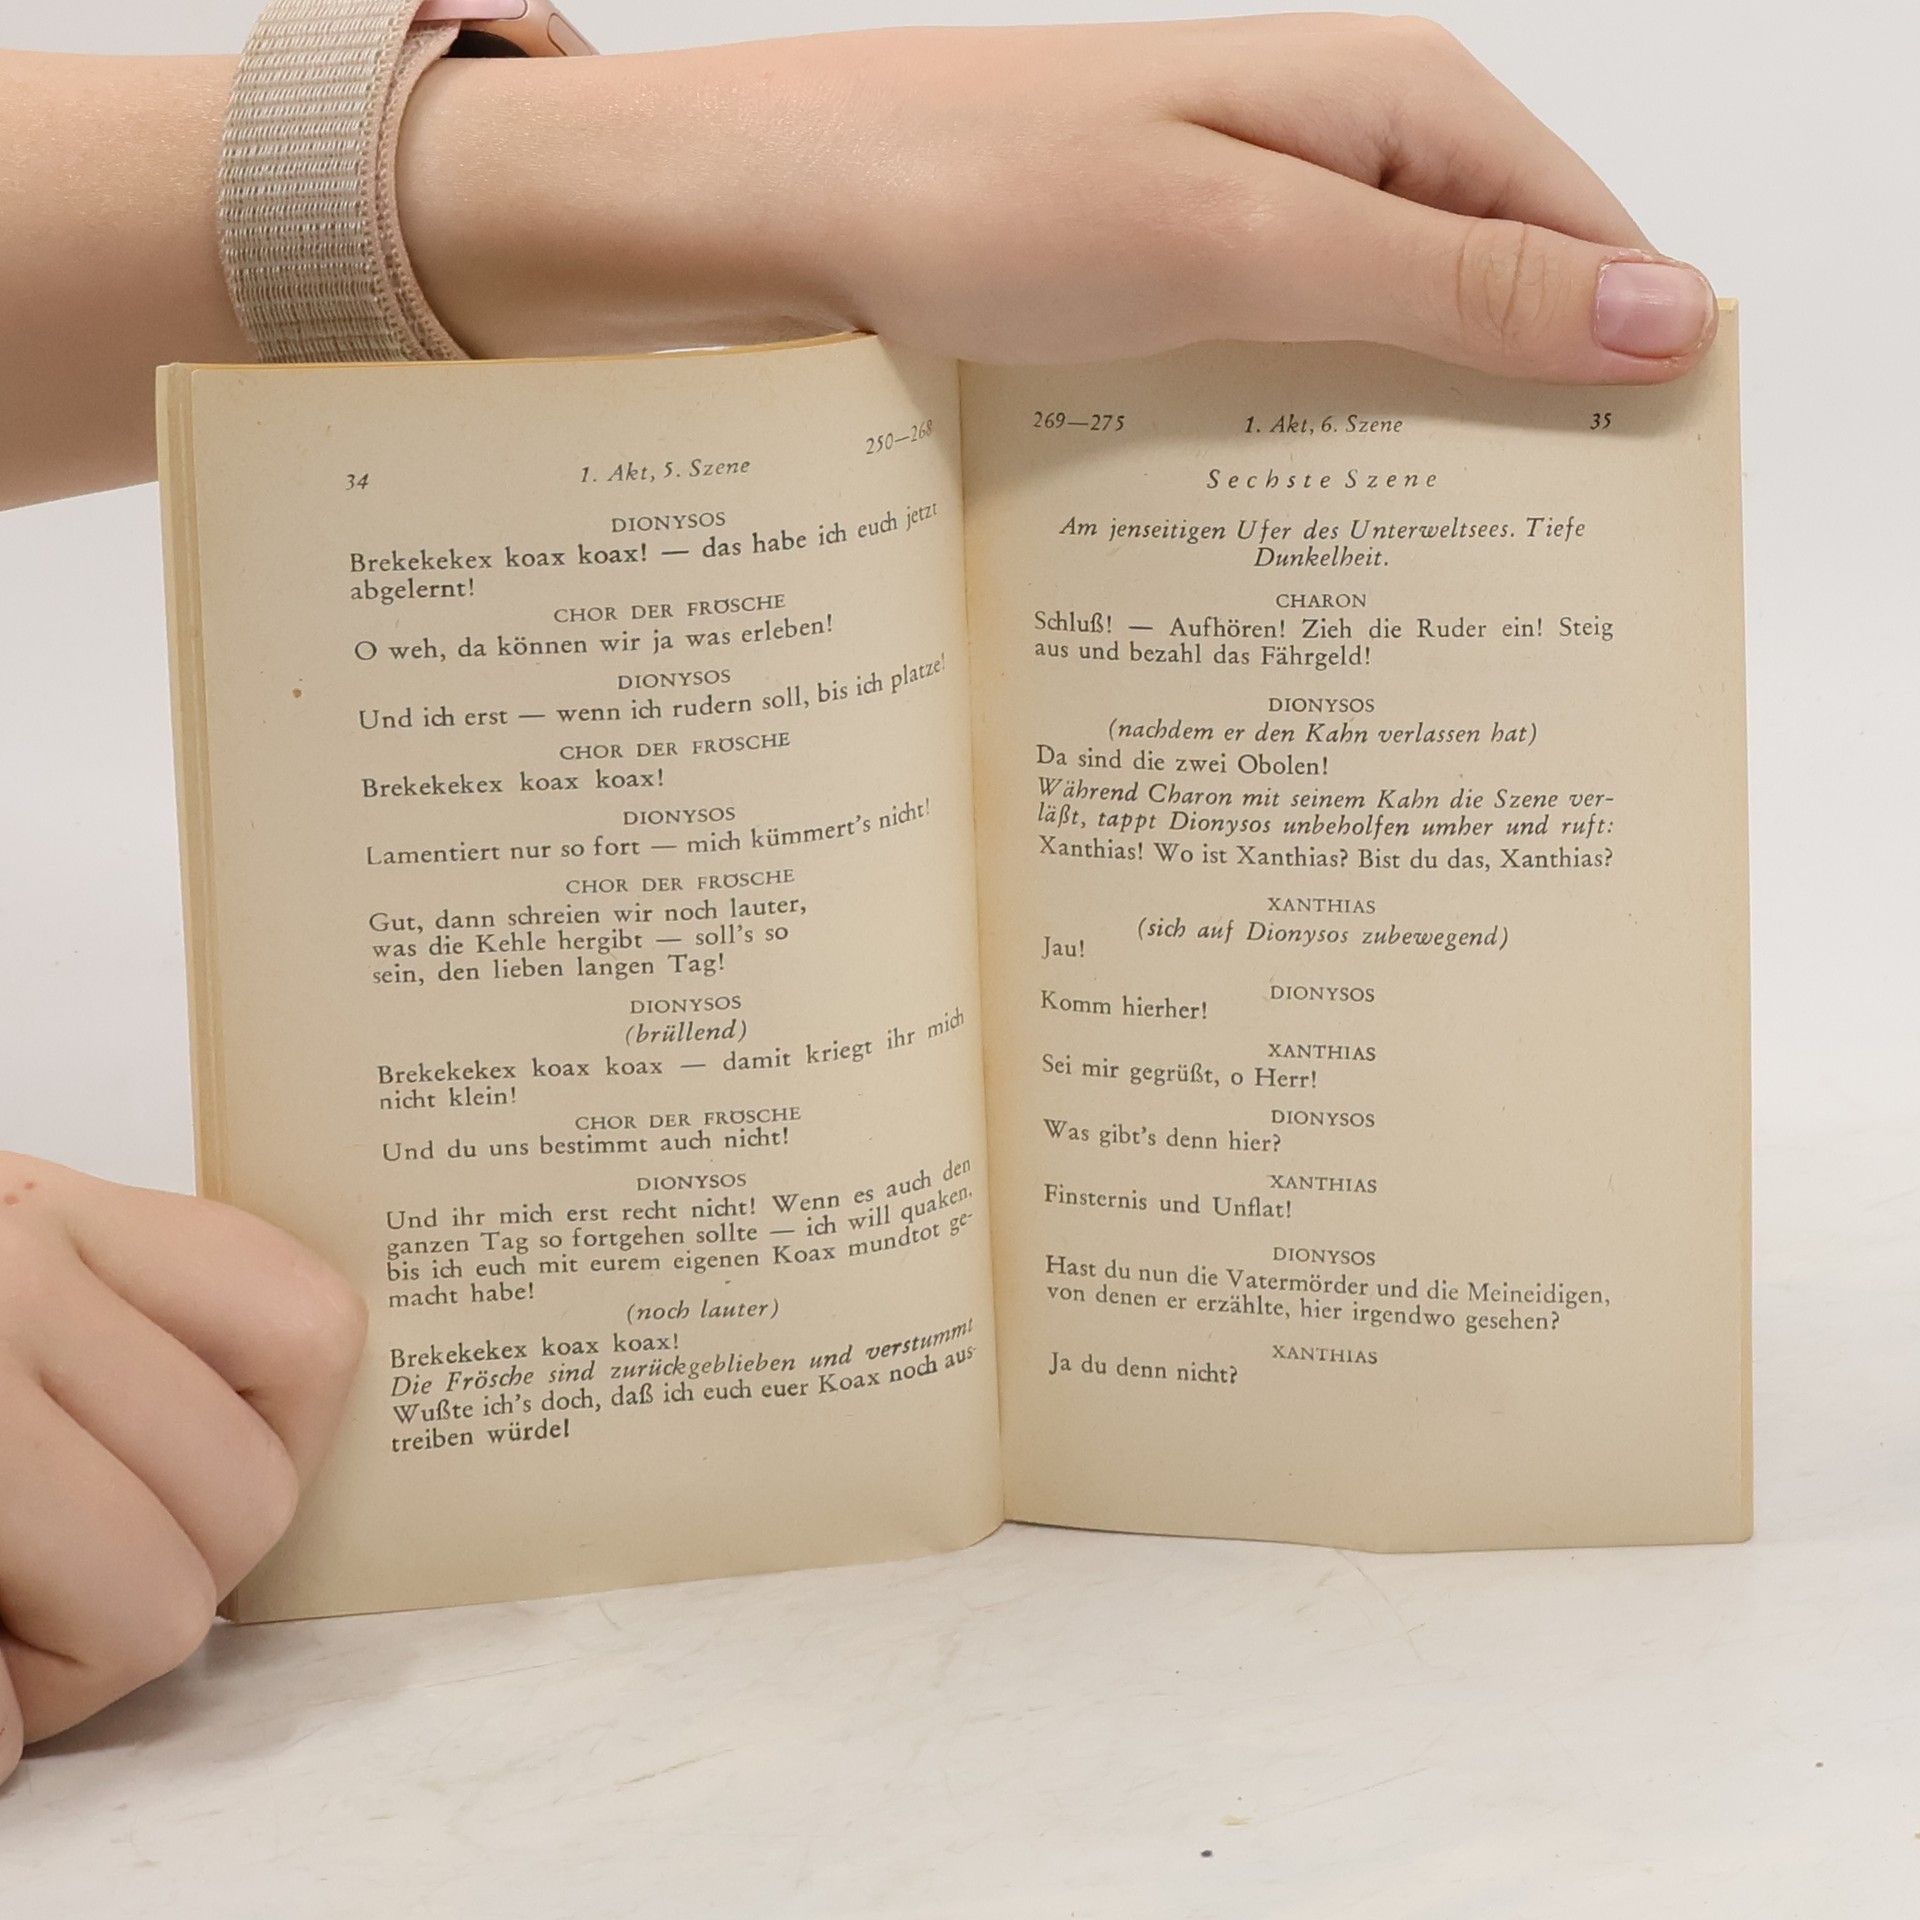 34 1. Akt, 5. Szene 250—268
DIONYSOS
Brekekekex koax koax! — das habe ich euch jetzt
abgelernt!
CHOR DER FRÖSCHE
O weh, da können wir ja was erleben!
DIONYSOS
Und ich erst — wenn ich rudern soll, bis ich platze!
CHOR DER FRÖSCHE
Brekekekex koax koax!
DIONYSOS
Lamentiert nur so fort — mich kümmert's nicht!
CHOR DER FRÖSCHE
Gut, dann schreien wir noch lauter,
was die Kehle hergibt — soll's so
sein, den lieben langen Tag!
DIONYSOS
(brüllend)
Brekekekex koax koax — damit kriegt ihr mich
nicht klein!
CHOR DER FRÖSCHE
Und du uns bestimmt auch nicht!
DIONYSOS
Und ihr mich erst recht nicht! Wenn es auch den
ganzen Tag so fortgehen sollte — ich will quaken,
bis ich euch mit eurem eigenen Koax mundtot ge-
macht habe!
(noch lauter)
Brekekekex koax koax!
Die Frösche sind zurückgeblieben und verstummt
Wußte ich's doch, daß ich euch euer Koax noch aus-
treiben würde!
269—275 1. Akt, 6. Szene 35
Sechste Szene
Am jenseitigen Ufer des Unterweltsees. Tiefe
Dunkelheit.
CHARON
Schluß! — Aufhören! Zieh die Ruder ein! Steig
aus und bezahl das Fährgeld!
DIONYSOS
(nachdem er den Kahn verlassen hat)
Da sind die zwei Obolen!
Während Charon mit seinem Kahn die Szene ver-
läßt, tappt Dionysos unbeholfen umher und ruft:
Xanthias! Wo ist Xanthias? Bist du das, Xanthias?
XANTHIAS
(sich auf Dionysos zubewegend)
Jau!
DIONYSOS
Komm hierher!
XANTHIAS
Sei mir gegrüßt, o Herr!
DIONYSOS
Was gibt's denn hier?
XANTHIAS
Finsternis und Unflat!
DIONYSOS
Hast du nun die Vatermörder und die Meineidigen,
von denen er erzählte, hier irgendwo gesehen?
XANTHIAS
Ja du denn nicht?